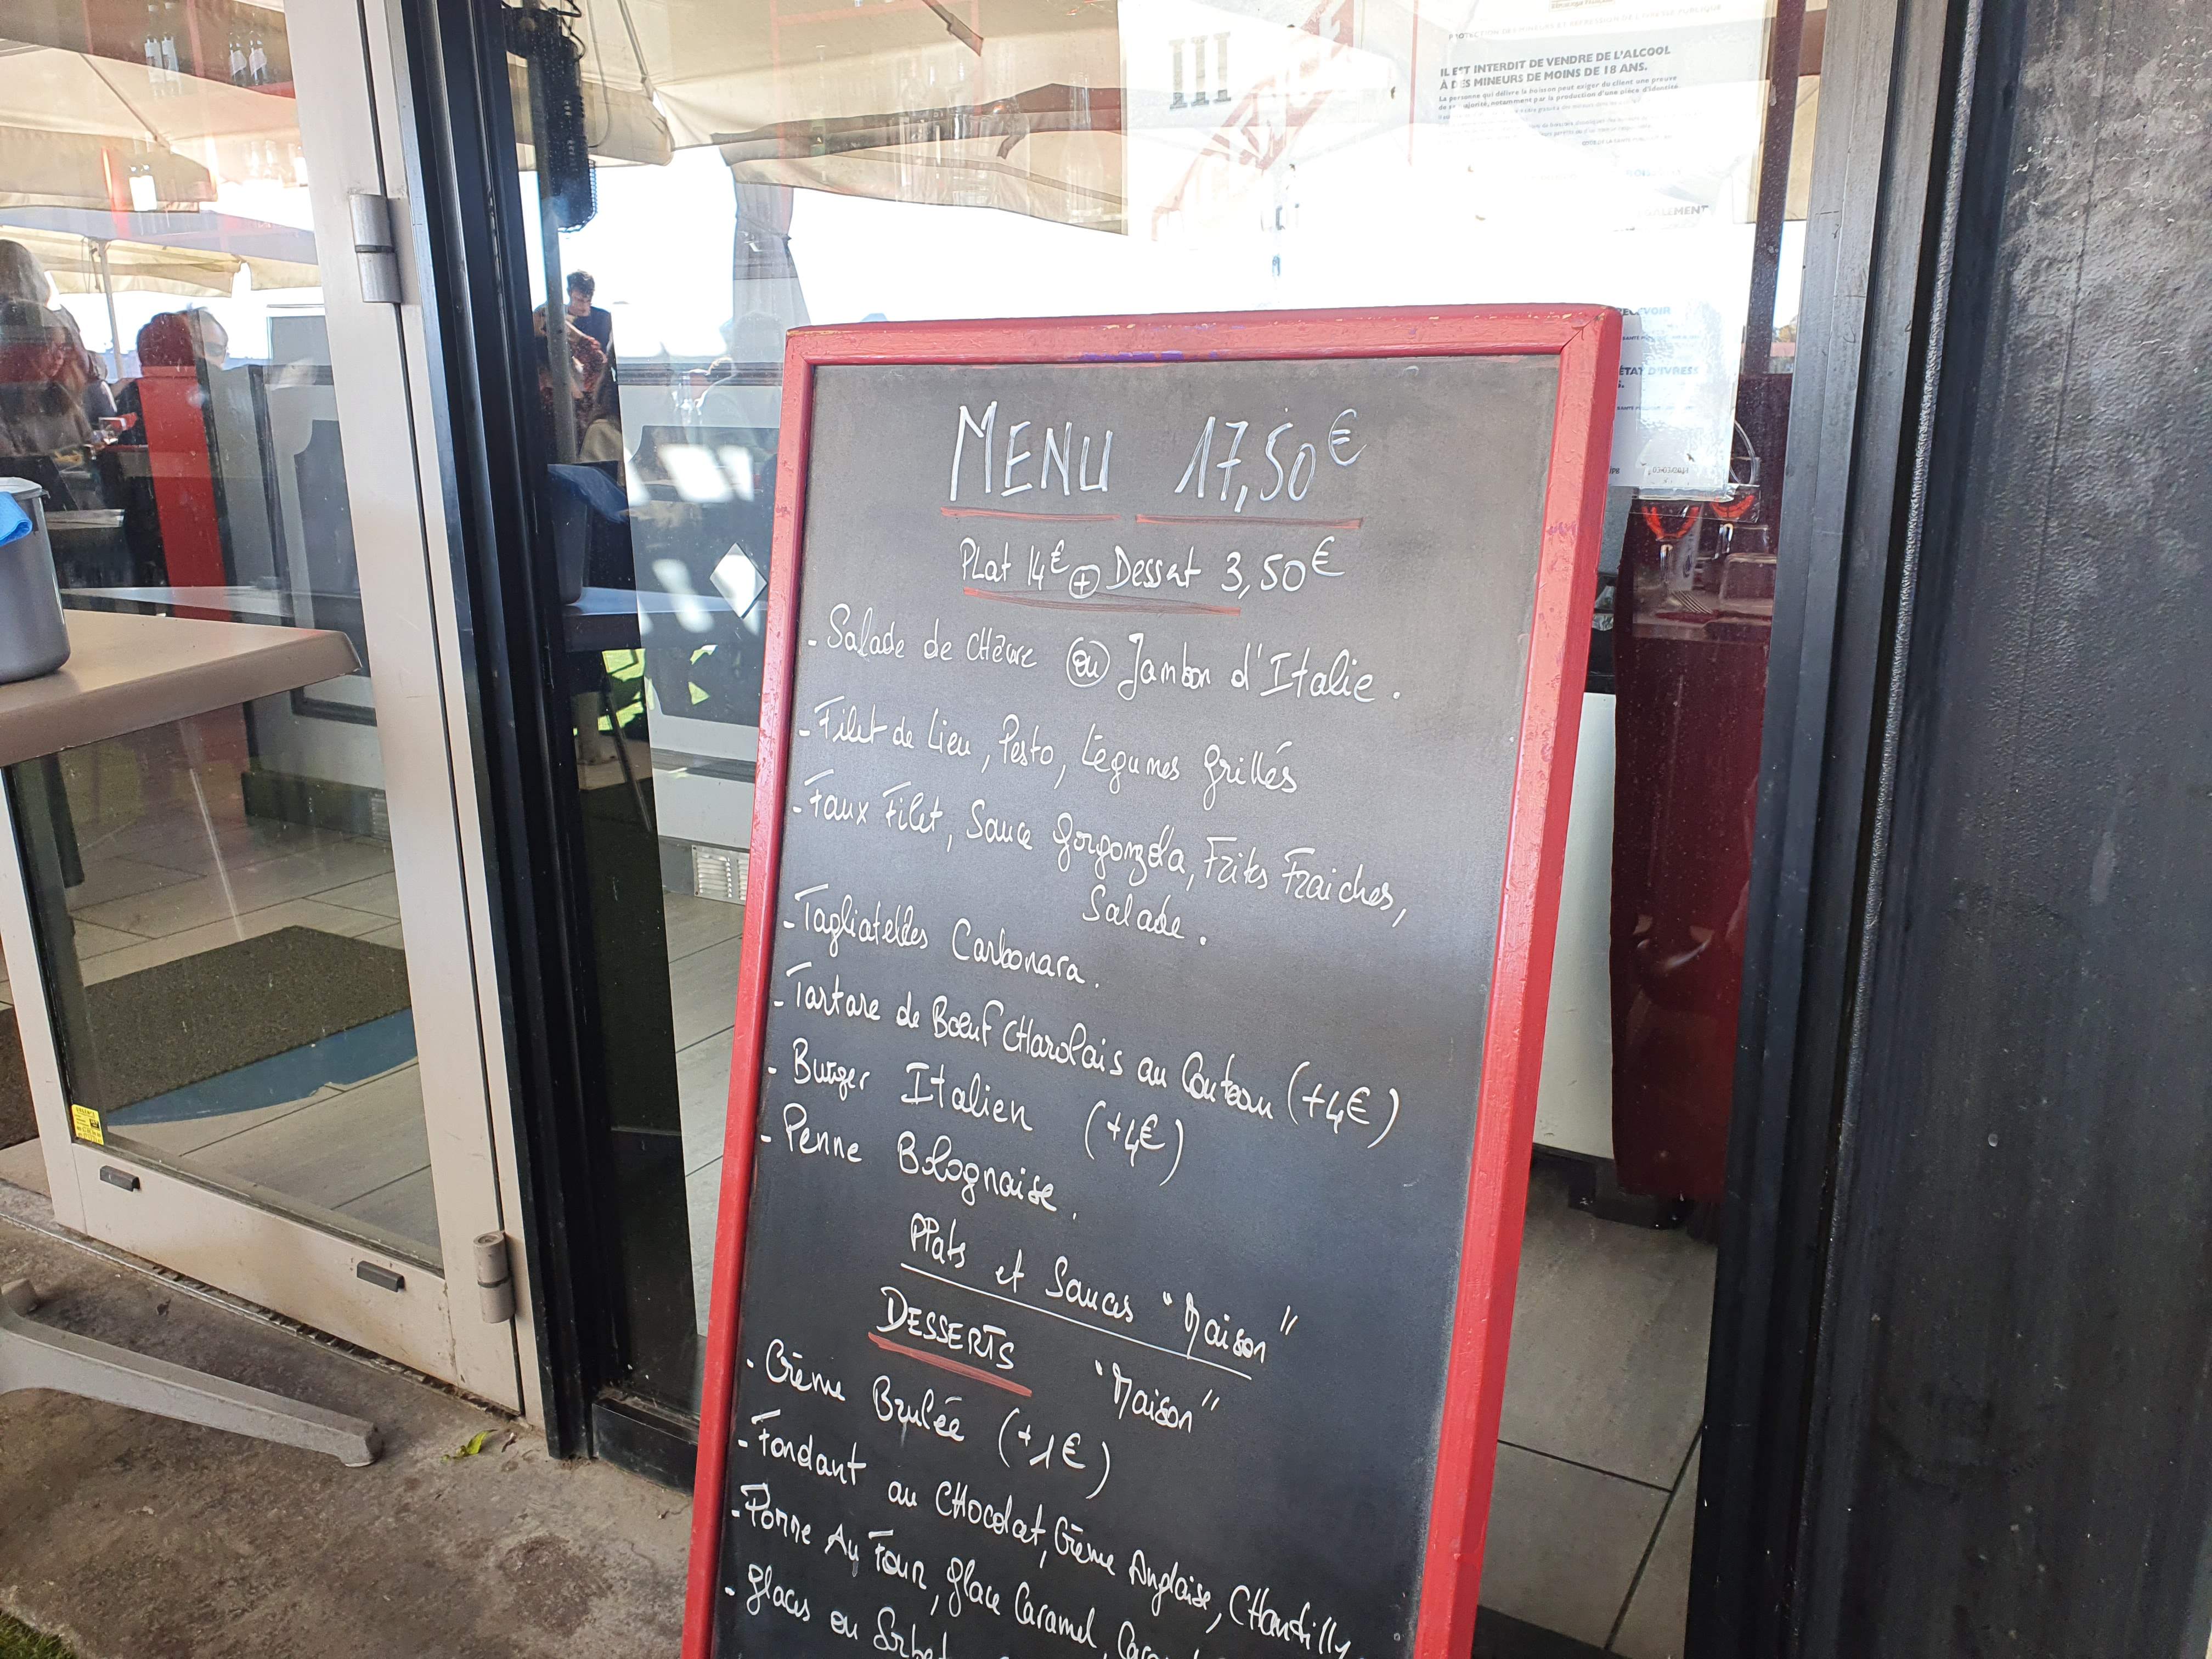 III
IL EST INTERDIT DE VENDRE DE L'ALCOOL
À DES MINEURS DE MOINS DE 18 ANS.
La personne qui délivre la boisson peut exiger du client une preuve
de sa majorité, notamment par la production d'une pièce d'identité
MENU 17,50€
Plat 14€ + Dessert 3,50€
- Salade de Chèvre ou Jambon d'Italie.
- Filet de Lieu, Pesto, Légumes Grillés
- Faux Filet, Sauce Gorgonzola, Frites Fraiches,
Salade.
- Tagliatelles Carbonara.
- Tartare de Bœuf Charolais au Couteau (+4€)
- Burger Italien (+4€)
- Penne Bolognaise.
Plats et Sauces "Maison"
DESSERTS "Maison"
- Crème Brulée (+1€)
- Fondant au Chocolat, Crème Anglaise, Chantilly
- Pomme Au Four, Glace Caramel,
- Glaces ou Sorbet